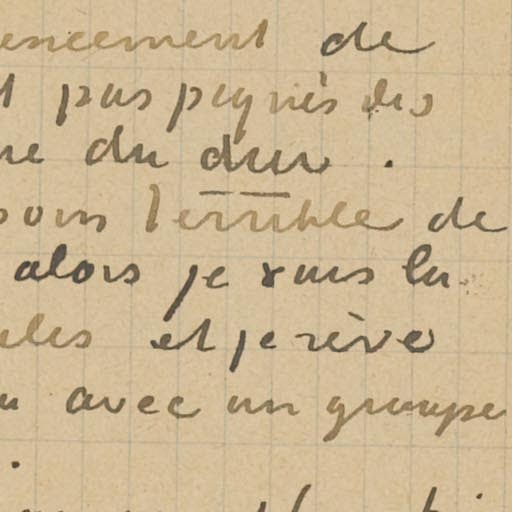 encement de
t pas peignés des
re du dur .
soin terrible de
alors je suis la
ules et je rêve
u avec un groupe
.